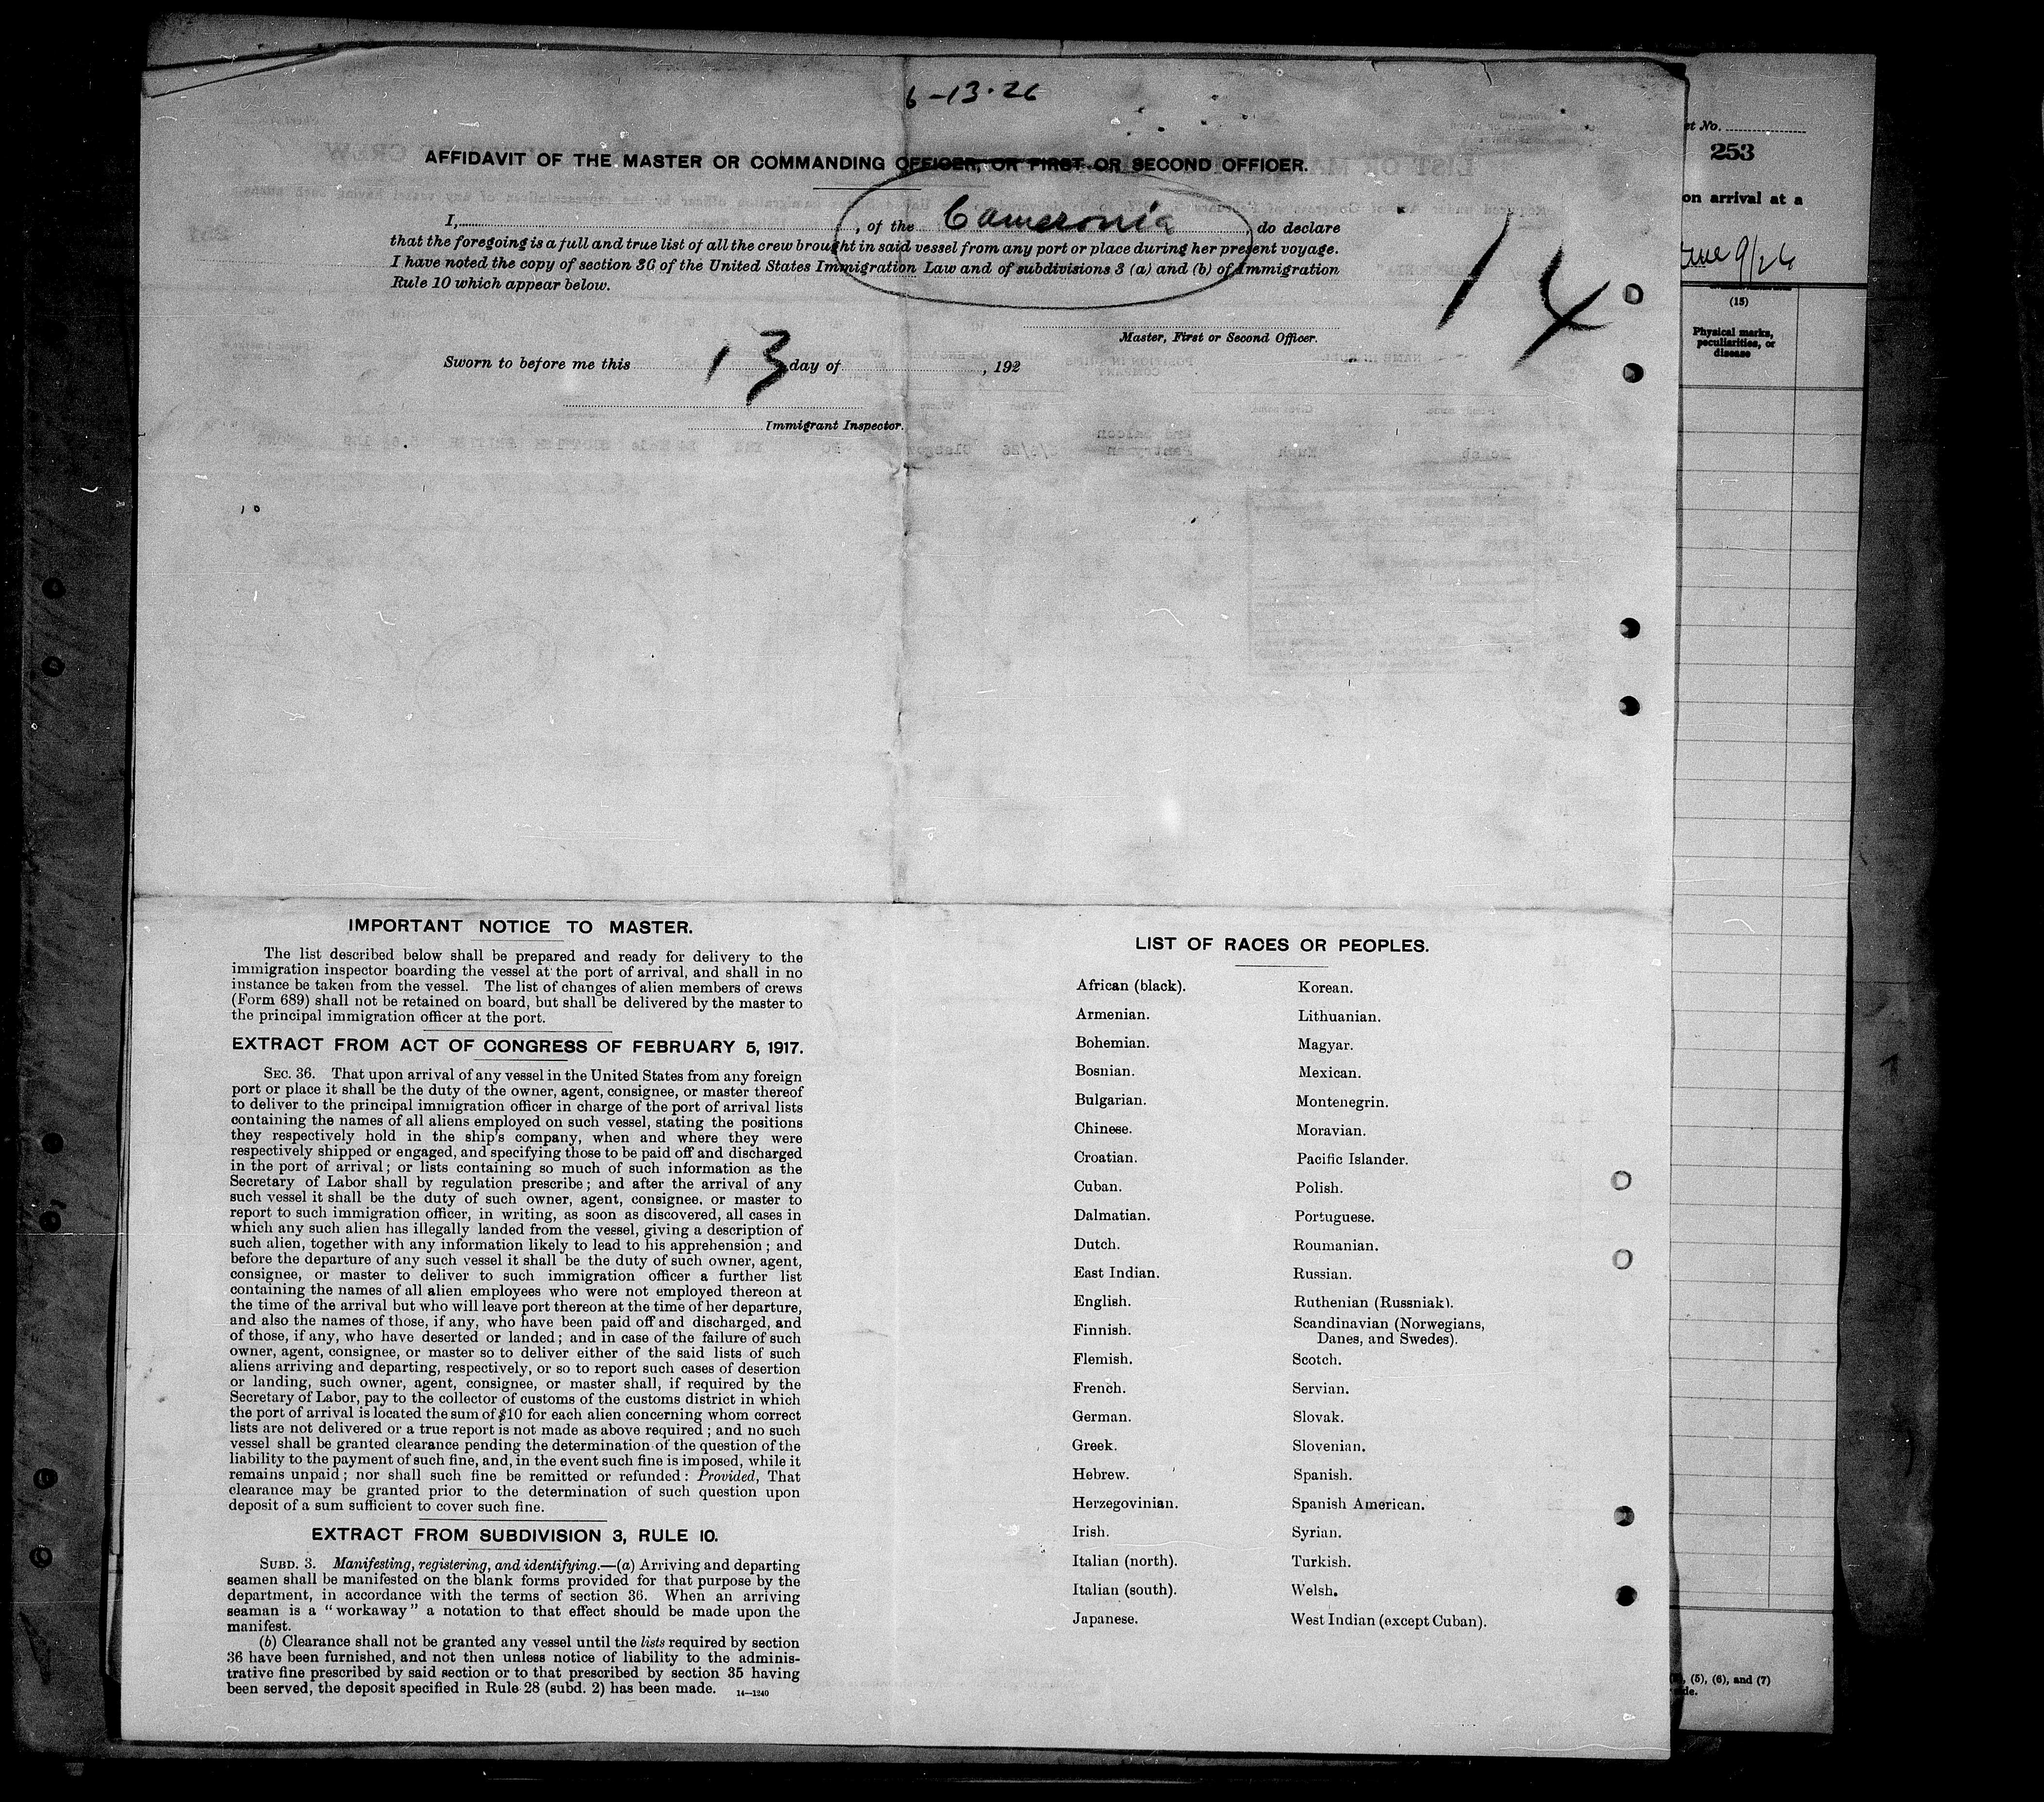 6-13-26
AFFIDAVIT OF THE MASTER OR COMMANDING OFFICER, OR FIRST OR SECOND OFFICER.
I, , of the Cameronia , do declare
that the foregoing is a full and true list of all the crew brought in said vessel from any port or place during her present voyage.
I have noted the copy of section 36 of the United States Immigration Law and of subdivisions 3 (a) and (b) of Immigration
Rule 10 which appear below.
14
Master, First or Second Officer.
Sworn to before me this 13 day of , 192
Immigrant Inspector.
IMPORTANT NOTICE TO MASTER.
The list described below shall be prepared and ready for delivery to the
immigration inspector boarding the vessel at the port of arrival, and shall in no
instance be taken from the vessel. The list of changes of alien members of crews
(Form 689) shall not be retained on board, but shall be delivered by the master to
the principal immigration officer at the port.
EXTRACT FROM ACT OF CONGRESS OF FEBRUARY 5, 1917.
SEC. 36. That upon arrival of any vessel in the United States from any foreign
port or place it shall be the duty of the owner, agent, consignee, or master thereof
to deliver to the principal immigration officer in charge of the port of arrival lists
containing the names of all aliens employed on such vessel, stating the positions
they respectively hold in the ship's company, when and where they were
respectively shipped or engaged, and specifying those to be paid off and discharged
in the port of arrival; or lists containing so much of such information as the
Secretary of Labor shall by regulation prescribe; and after the arrival of any
such vessel it shall be the duty of such owner, agent, consignee. or master to
report to such immigration officer, in writing, as soon as discovered, all cases in
which any such alien has illegally landed from the vessel, giving a description of
such alien, together with any information likely to lead to his apprehension; and
before the departure of any such vessel it shall be the duty of such owner, agent,
consignee, or master to deliver to such immigration officer a further list
containing the names of all alien employees who were not employed thereon at
the time of the arrival but who will leave port thereon at the time of her departure,
and also the names of those, if any, who have been paid off and discharged, and
of those, if any, who have deserted or landed; and in case of the failure of such
owner, agent, consignee, or master so to deliver either of the said lists of such
aliens arriving and departing, respectively, or so to report such cases of desertion
or landing, such owner, agent, consignee, or master shall, if required by the
Secretary of Labor, pay to the collector of customs of the customs district in which
the port of arrival is located the sum of $10 for each alien concerning whom correct
lists are not delivered or a true report is not made as above required; and no such
vessel shall be granted clearance pending the determination of the question of the
liability to the payment of such fine, and, in the event such fine is imposed, while it
remains unpaid; nor shall such fine be remitted or refunded: Provided, That
clearance may be granted prior to the determination of such question upon
deposit of a sum sufficient to cover such fine.
EXTRACT FROM SUBDIVISION 3, RULE 10.
SUBD. 3. Manifesting, registering, and identifying.—(a) Arriving and departing
seamen shall be manifested on the blank forms provided for that purpose by the
department, in accordance with the terms of section 36. When an arriving
seaman is a "workaway" a notation to that effect should be made upon the
manifest.
(b) Clearance shall not be granted any vessel until the lists required by section
36 have been furnished, and not then unless notice of liability to the adminis-
trative fine prescribed by said section or to that prescribed by section 35 having
been served, the deposit specified in Rule 28 (subd. 2) has been made. 14—1240
LIST OF RACES OR PEOPLES.
African (black). Korean.
Armenian. Lithuanian.
Bohemian. Magyar.
Bosnian. Mexican.
Bulgarian. Montenegrin.
Chinese. Moravian.
Croatian. Pacific Islander.
Cuban. Polish.
Dalmatian. Portuguese.
Dutch. Roumanian.
East Indian. Russian.
English. Ruthenian (Russniak).
Finnish. Scandinavian (Norwegians,
Danes, and Swedes).
Flemish. Scotch.
French. Servian.
German. Slovak.
Greek. Slovenian.
Hebrew. Spanish.
Herzegovinian. Spanish American.
Irish. Syrian.
Italian (north). Turkish.
Italian (south). Welsh.
Japanese. West Indian (except Cuban).
No.
253
on arrival at a
9/26
(15)
Physical marks,
peculiarities, or
disease
(5), (6), and (7)